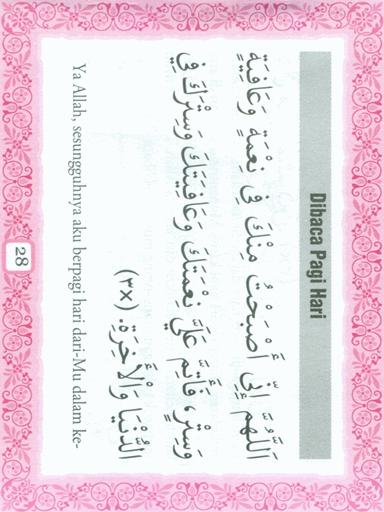 Dibaca Pagi Hari
اَللَّهُمَّ اِنِّيْ اَصْبَحْتُ مِنْكَ فِيْ نِعْمَةٍ وَعَافِيَةٍ
وَسِتْرٍ، فَأَتِمَّ عَلَيَّ نِعْمَتَكَ وَعَافِيَتَكَ وَسِتْرَكَ فِي
الدُّنْيَا وَالْأَخِرَةِ. (٣x)
Ya Allah, sesungguhnya aku berpagi hari dari-Mu dalam ke-
28